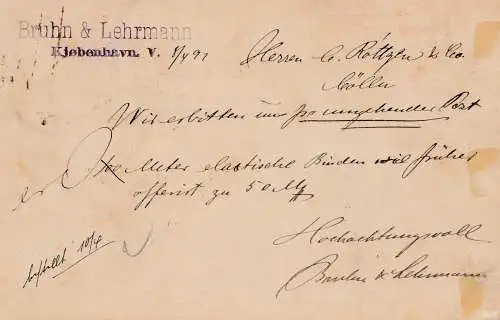 Bruhn & Lehrmann
Kjøbenhavn. V. 8/4 92
Herren C. Röttgen & Co.
Cölln
Wir erbitten um per umgehender Post
Meter elastische Binden wie früher
offerirt zu 50 M
Hochachtungsvoll
Bruhn & Lehrmann
bestellt 10/4